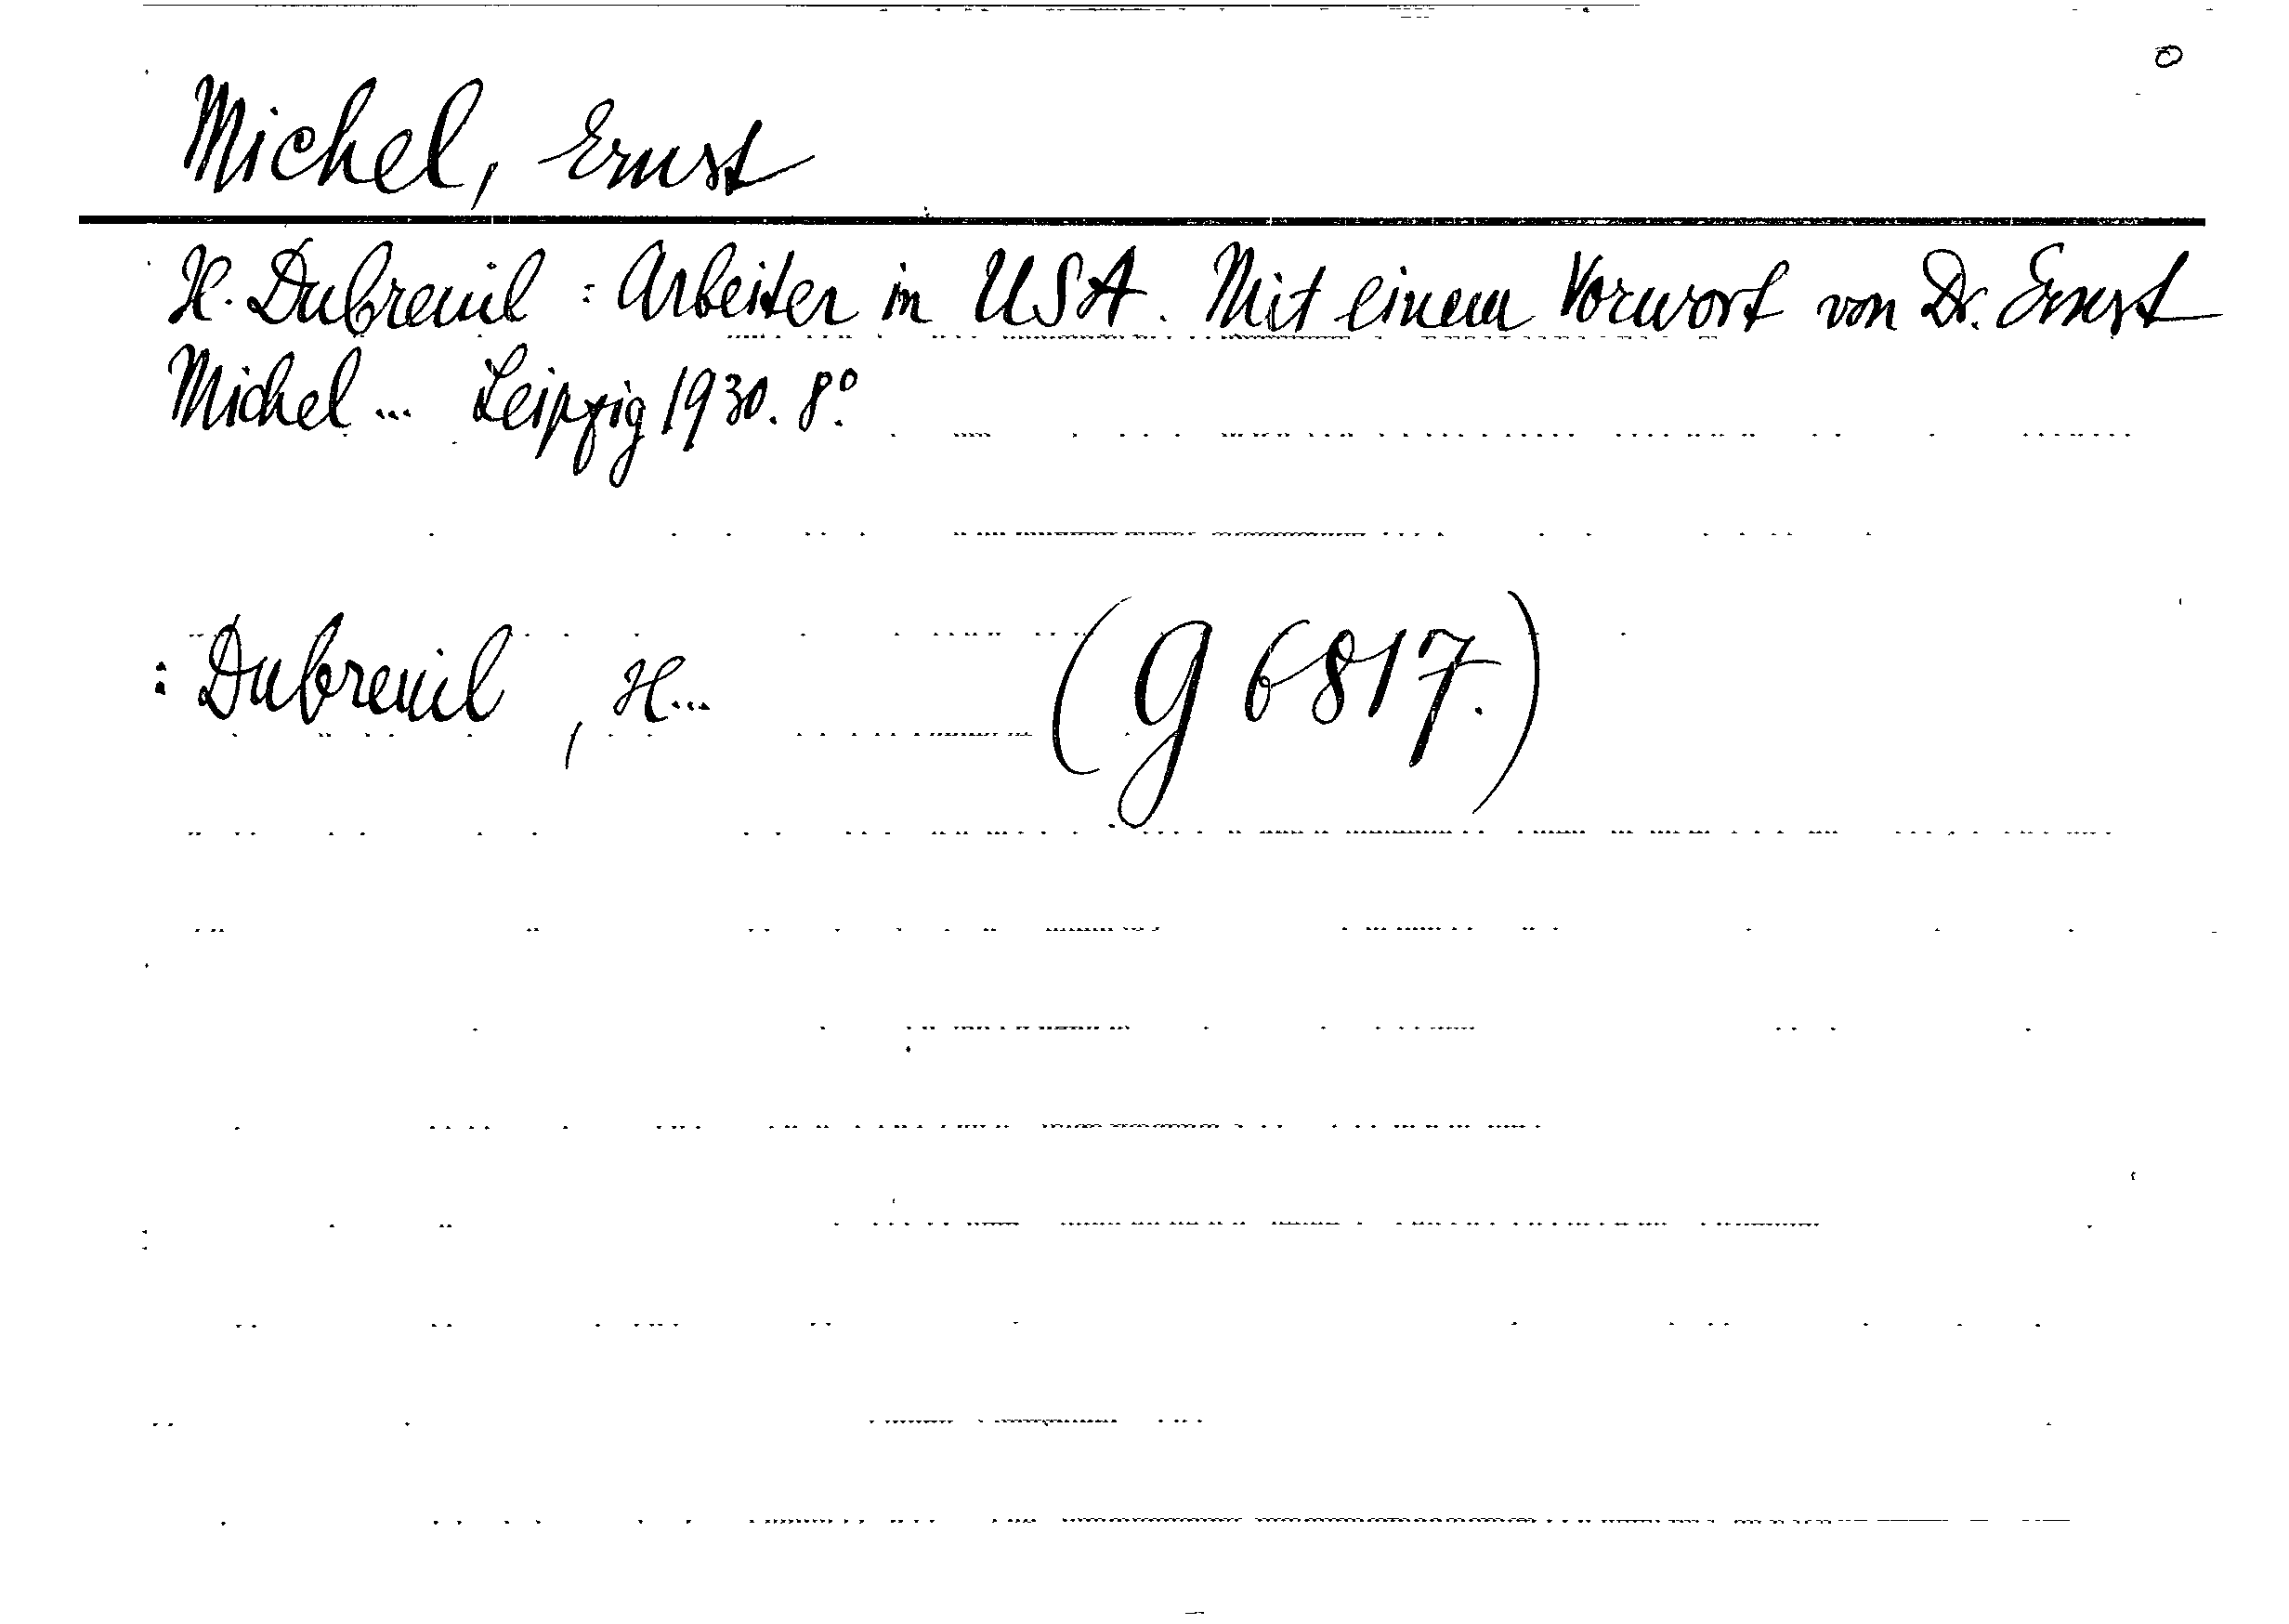 Michel, Ernst
H. Dubreuil : Arbeiter in USA. Mit einem Vorwort von Dr. Ernst
Michel ... Leipzig 1930. 8°.
: Dubreuil, H... (g 6817.)